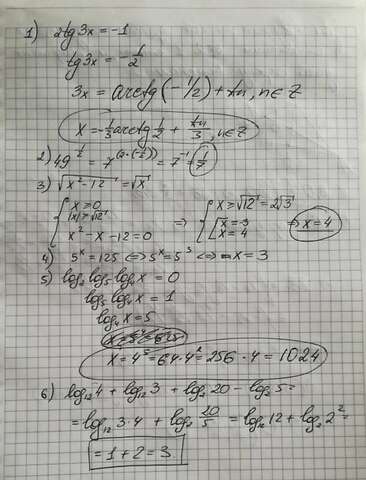 1) 2tg3x = -1
tg3x = -1/2
3x = arctg(-1/2) + πn, n∈Z
x = -1/3 arctg 1/2 + πn/3, n∈Z
2) 49^(-1/2) = 7^(2·(-1/2)) = 7^(-1) = 1/7
3) √(x²-12) = √x
{ x ≥ 0
|x| ≥ √12
x² - x - 12 = 0
⇒ { x ≥ √12 = 2√3
[ x = -3
x = 4
⇒ x = 4
4) 5^x = 125 <=> 5^x = 5³ <=> x = 3
5) log₂ log₅ log₄ x = 0
log₅ log₄ x = 1
log₄ x = 5
x = 4⁵ = 64·4² = 256·4 = 1024
6) log₁₂ 4 + log₁₂ 3 + log₂ 20 - log₂ 5 =
= log₁₂ 3·4 + log₂ 20/5 = log₁₂ 12 + log₂ 2² =
= 1 + 2 = 3